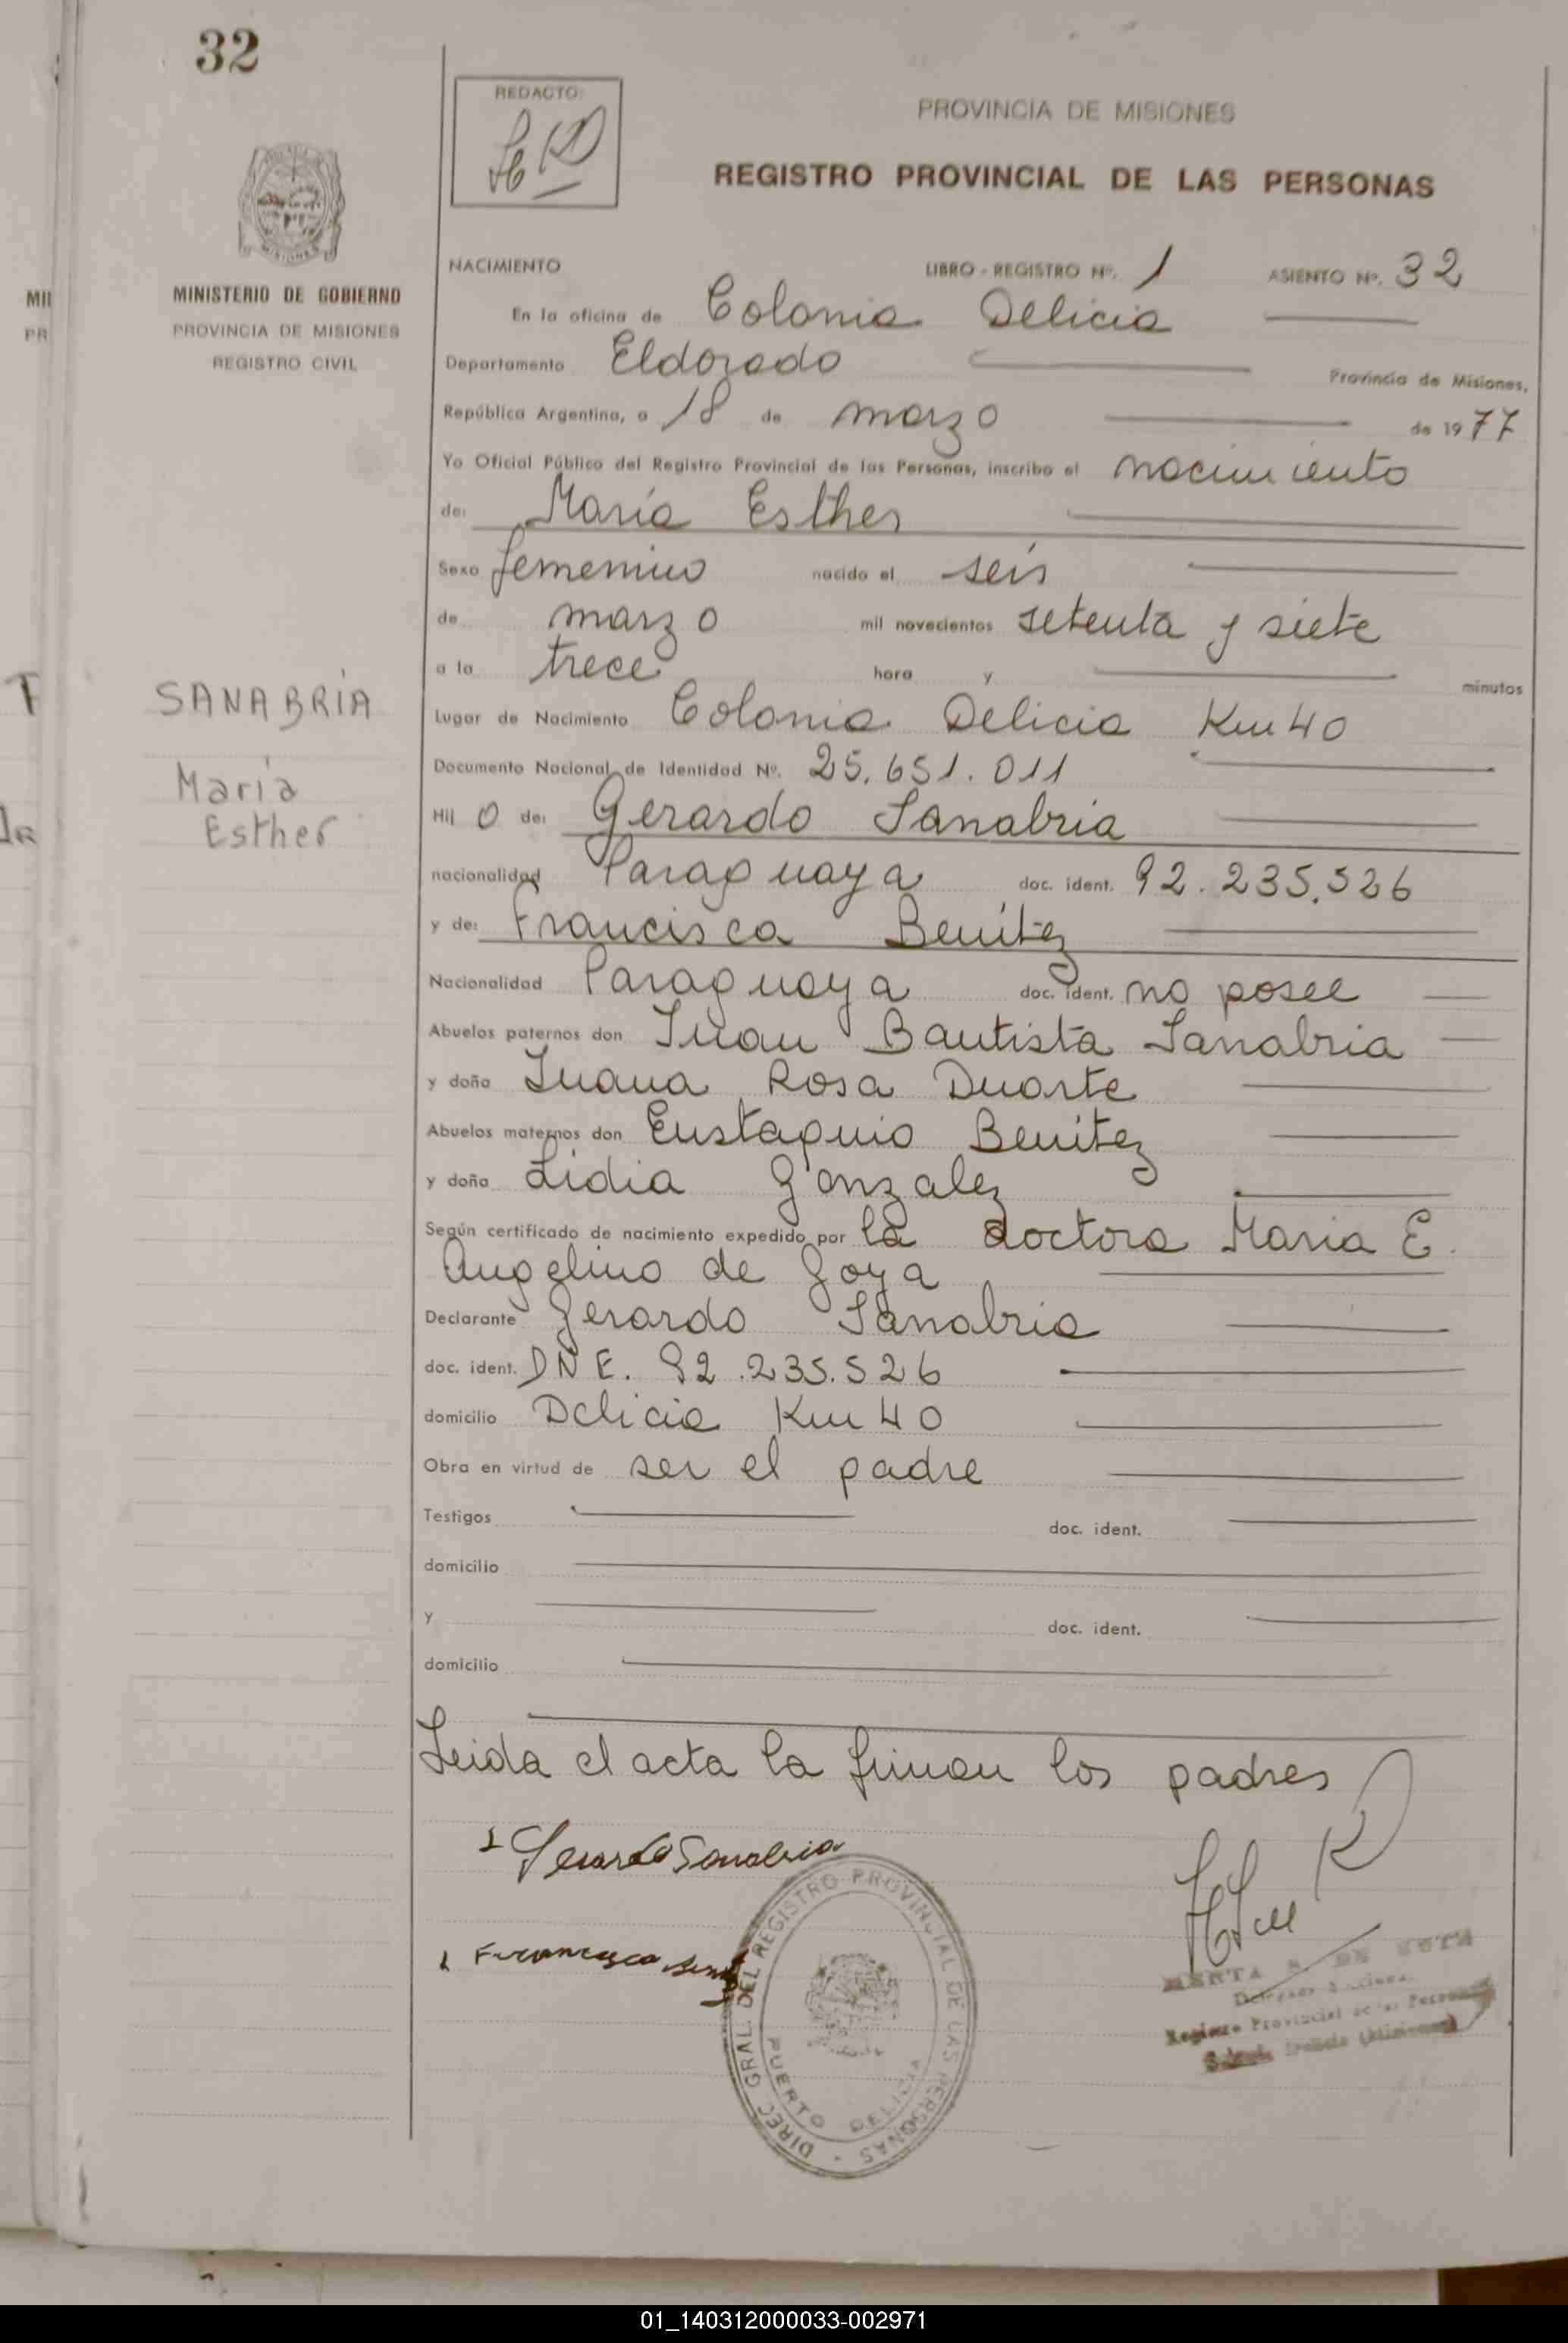 32
REDACTO:
PROVINCIA DE MISIONES
REGISTRO PROVINCIAL DE LAS PERSONAS
NACIMIENTO LIBRO - REGISTRO Nº. 1 ASIENTO Nº. 32
MINISTERIO DE GOBIERNO
PROVINCIA DE MISIONES
REGISTRO CIVIL
En la oficina de Colonia Delicia
Departamento Eldorado Provincia de Misiones,
República Argentina, a 18 de marzo de 1977
Yo Oficial Público del Registro Provincial de las Personas, inscribo el nacimiento
de: María Esther
Sexo femenino nacido el seis
de marzo mil novecientos setenta y siete
a la trece hora y minutos
SANABRÍA
María
Esther
Lugar de Nacimiento Colonia Delicia Km 40
Documento Nacional de Identidad Nº. 25.651.011
Hij o de: Gerardo Sanabria
nacionalidad Paraguaya doc. ident. 92.235.526
y de: Francisca Benítez
Nacionalidad Paraguaya doc. ident. no posee
Abuelos paternos don Juan Bautista Sanabria
y doña Juana Rosa Duarte
Abuelos maternos don Eustaquio Benítez
y doña Lidia Gonzalez
Según certificado de nacimiento expedido por la doctora Maria E.
Angelino de Goya
Declarante Gerardo Sanabria
doc. ident. DNE. 92.235.526
domicilio Delicia Km 40
Obra en virtud de ser el padre
Testigos doc. ident.
domicilio
y doc. ident.
domicilio
Leida el acta la firman los padres
Gerardo Sanabria
Francisca
DIREC. GRAL. DEL REGISTRO PROVINCIAL DE LAS PERSONAS
PUERTO DELICIA
Registro Provincial de las Personas
Delicia (Misiones)
01_140312000033-002971